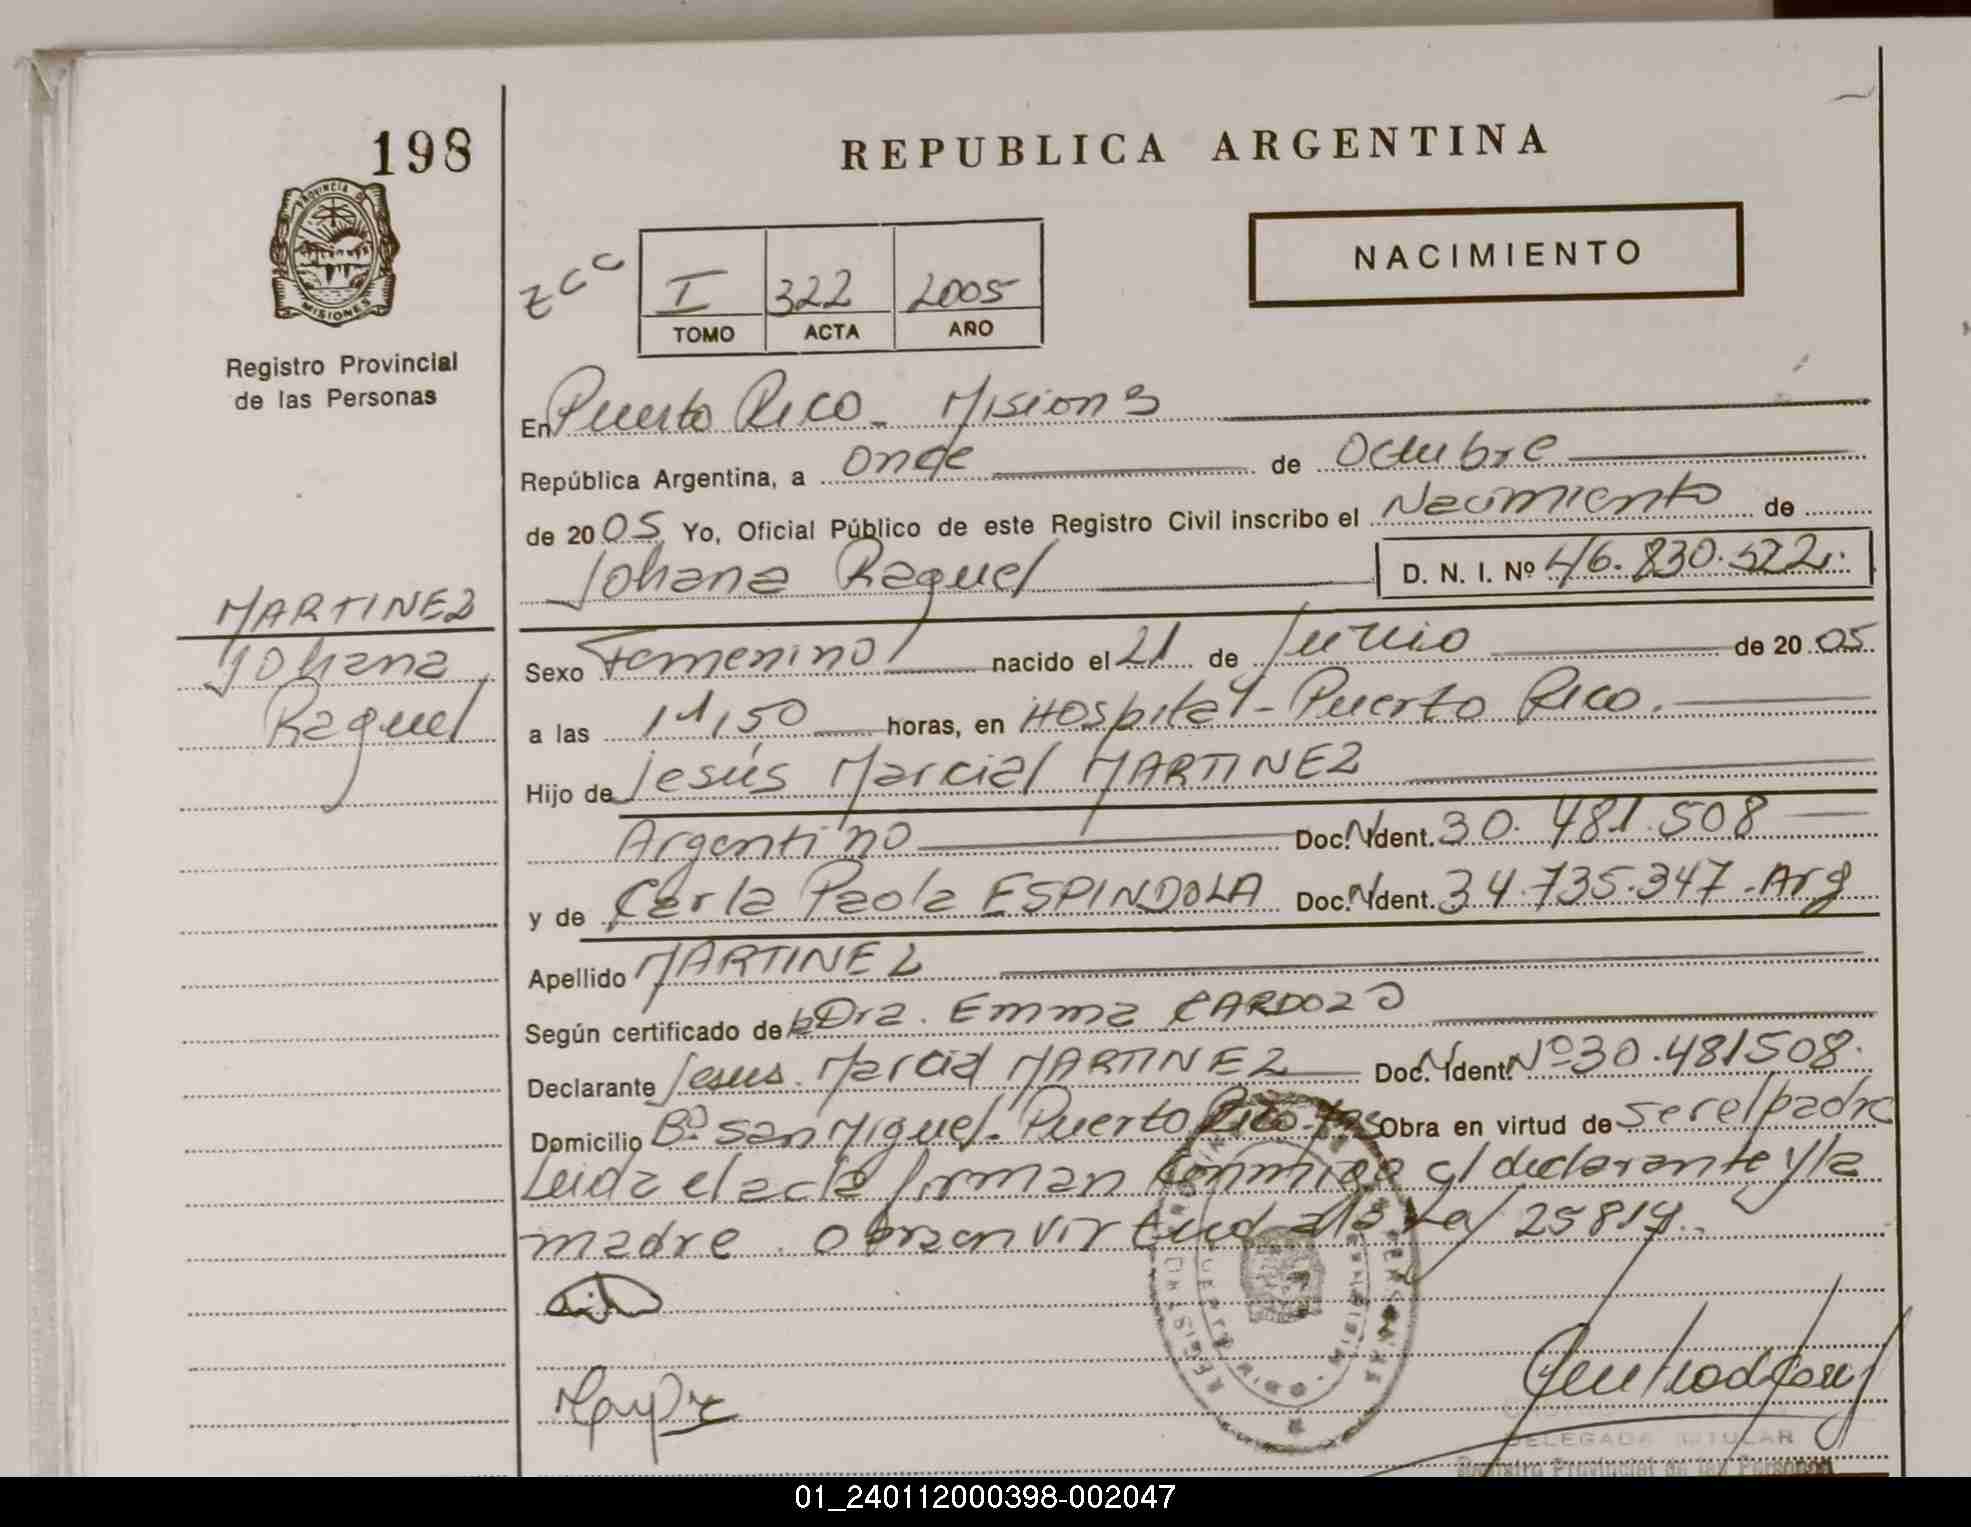 198
REPUBLICA ARGENTINA
PROVINCIA DE
MISIONES
Registro Provincial
de las Personas
NACIMIENTO
zcc
I 322 2005
TOMO ACTA AÑO
En Puerto Rico - Misiones
República Argentina, a once de Octubre
de 2005 Yo, Oficial Público de este Registro Civil inscribo el Nacimiento de
Johana Raquel D. N. I. Nº 46.830.522.
MARTINEZ
Johana
Raquel
Sexo Femenino nacido el 21 de Junio de 2005
a las 11,50 horas, en Hospital - Puerto Rico.
Hijo de Jesús Marcial MARTINEZ
Argentino Doc. Nº Ident. 30.481.508
y de Carla Paola ESPINDOLA Doc. Nº Ident. 34.735.347 - Arg
Apellido MARTINEZ
Según certificado de la Dra. Emma CARDOZO
Declarante Jesus Marcial MARTINEZ Doc. Ident. Nº 30.481508.
Domicilio Bº San Miguel - Puerto Rico - Mnes Obra en virtud de ser el padre
Leida el acta firman conmigo el declarante y la
madre. Obra en virtud a la Ley 25819.
DELEGADA TITULAR
Registro Provincial de las Personas
01_240112000398-002047